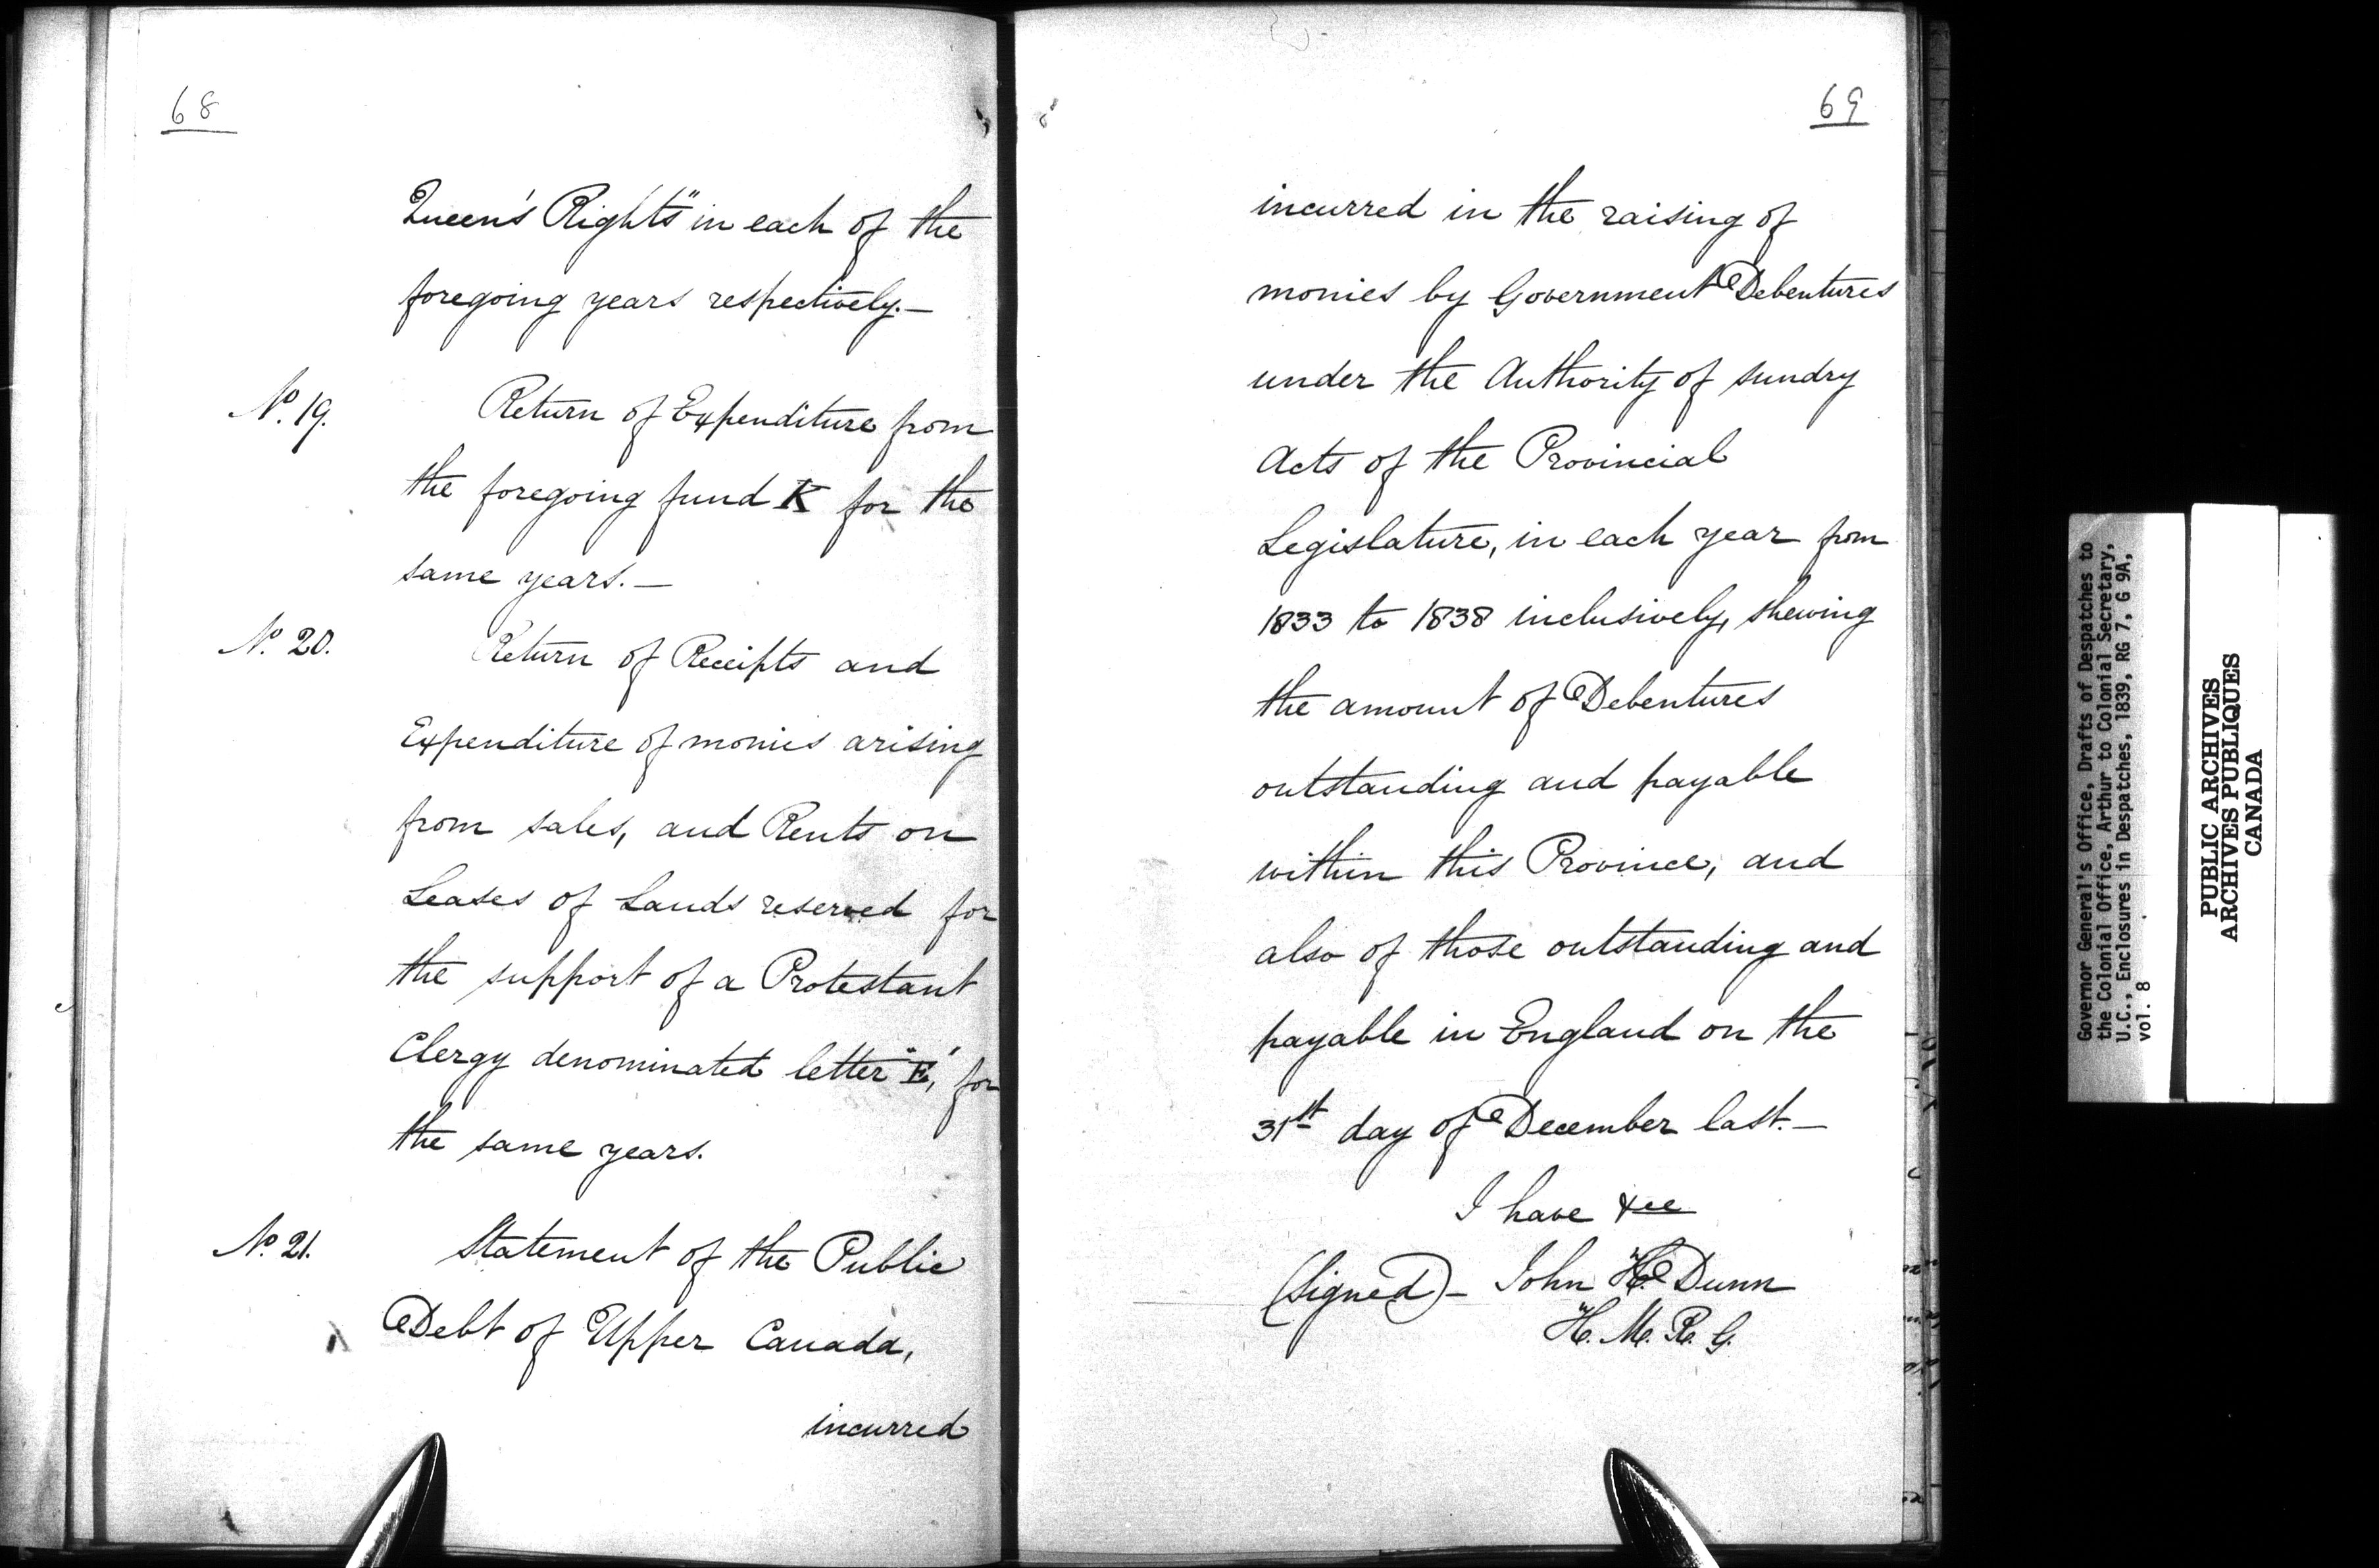 68
Queen's Rights" in each of the
foregoing years respectively.—
No. 19. Return of Expenditure from
the foregoing fund K for the
same years.—
No. 20. Return of Receipts and
Expenditure of monies arising
from sales, and Rents on
Leases of Lands reserved for
the support of a Protestant
Clergy denominated letter "E," for
the same years.
No. 21. Statement of the Public
Debt of Upper Canada,
incurred
69
incurred in the raising of
monies by Government Debentures
under the Authority of sundry
Acts of the Provincial
Legislature, in each year from
1833 to 1838 inclusively, shewing
the amount of Debentures
outstanding and payable
within this Province, and
also of those outstanding and
payable in England on the
31st day of December last.—
I have &ce
(Signed)— John H. Dunn
H. M. R. G.
Governor General's Office, Drafts of Despatches to
the Colonial Office, Arthur to Colonial Secretary,
U.C., Enclosures in Despatches, 1839, RG 7, G 9A,
vol. 8
PUBLIC ARCHIVES
ARCHIVES PUBLIQUES
CANADA